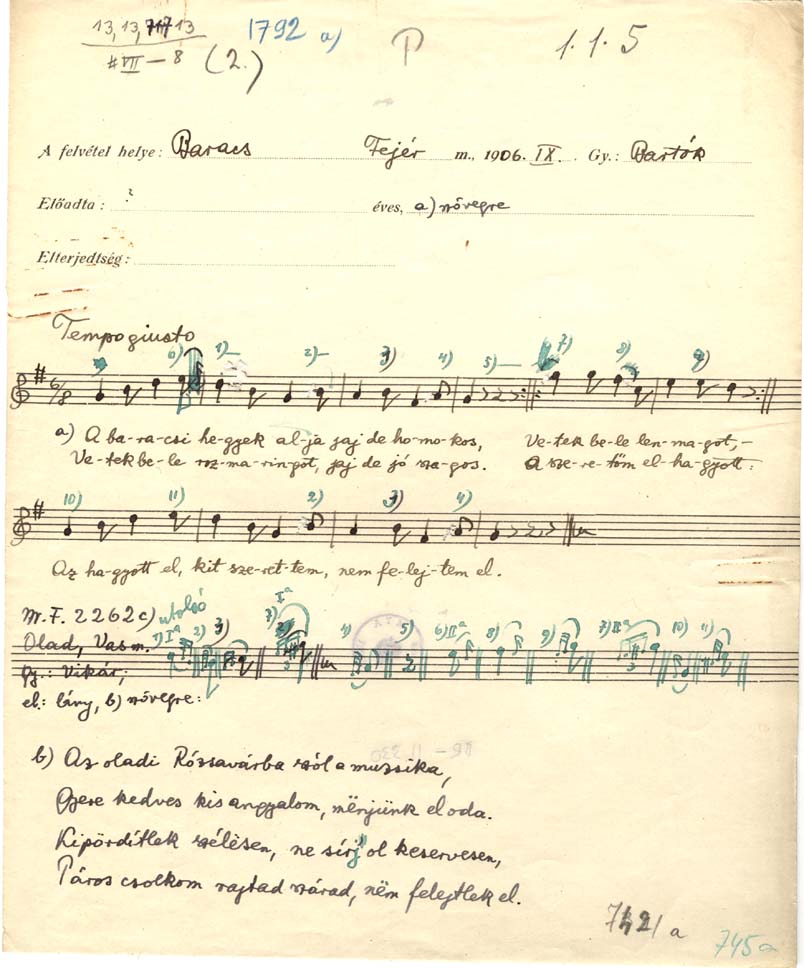 13, 13, 13 1792 a) P 1.1.5
#VII — 8 (2.)
A felvétel helye: Baracs Fejér m., 1906. IX. Gy.: Bartók
Előadta: ? éves, a) szövegre
Elterjedtség:
Tempo giusto
6) 1) 2) 3) 4) 5) 7) 8) 9)
6/8
a) A ba-ra-csi he-gyek al-ja jaj de ho-mo-kos, Ve-tek be-le len-ma-got,-
Ve-tek be-le roz-ma-rin-got, jaj de jó sza-gos. A sze-re-tőm el-ha-gyott:
10) 11) 2) 3) 4)
Az ha-gyott el, kit sze-ret-tem, nem fe-lej-tem el.
M.F. 2262c) utolsó
Olad, Vasm. 1) Iª 2) 3) 7) Iª 4) 5) 6) IIª 8) 9) 7) IIª 10) 11)
gy.: Vikár;
el.: lány, b) szövegre:
b) Az oladi Rózsavárba szól a muzsika,
Gyere kedves kis angyalom, mënjünk el oda.
Kipördítlek szélësen, ne sírj ol keservesen,
Páros csolkom rajtad szárad, nëm felejtlek el.
a 745a